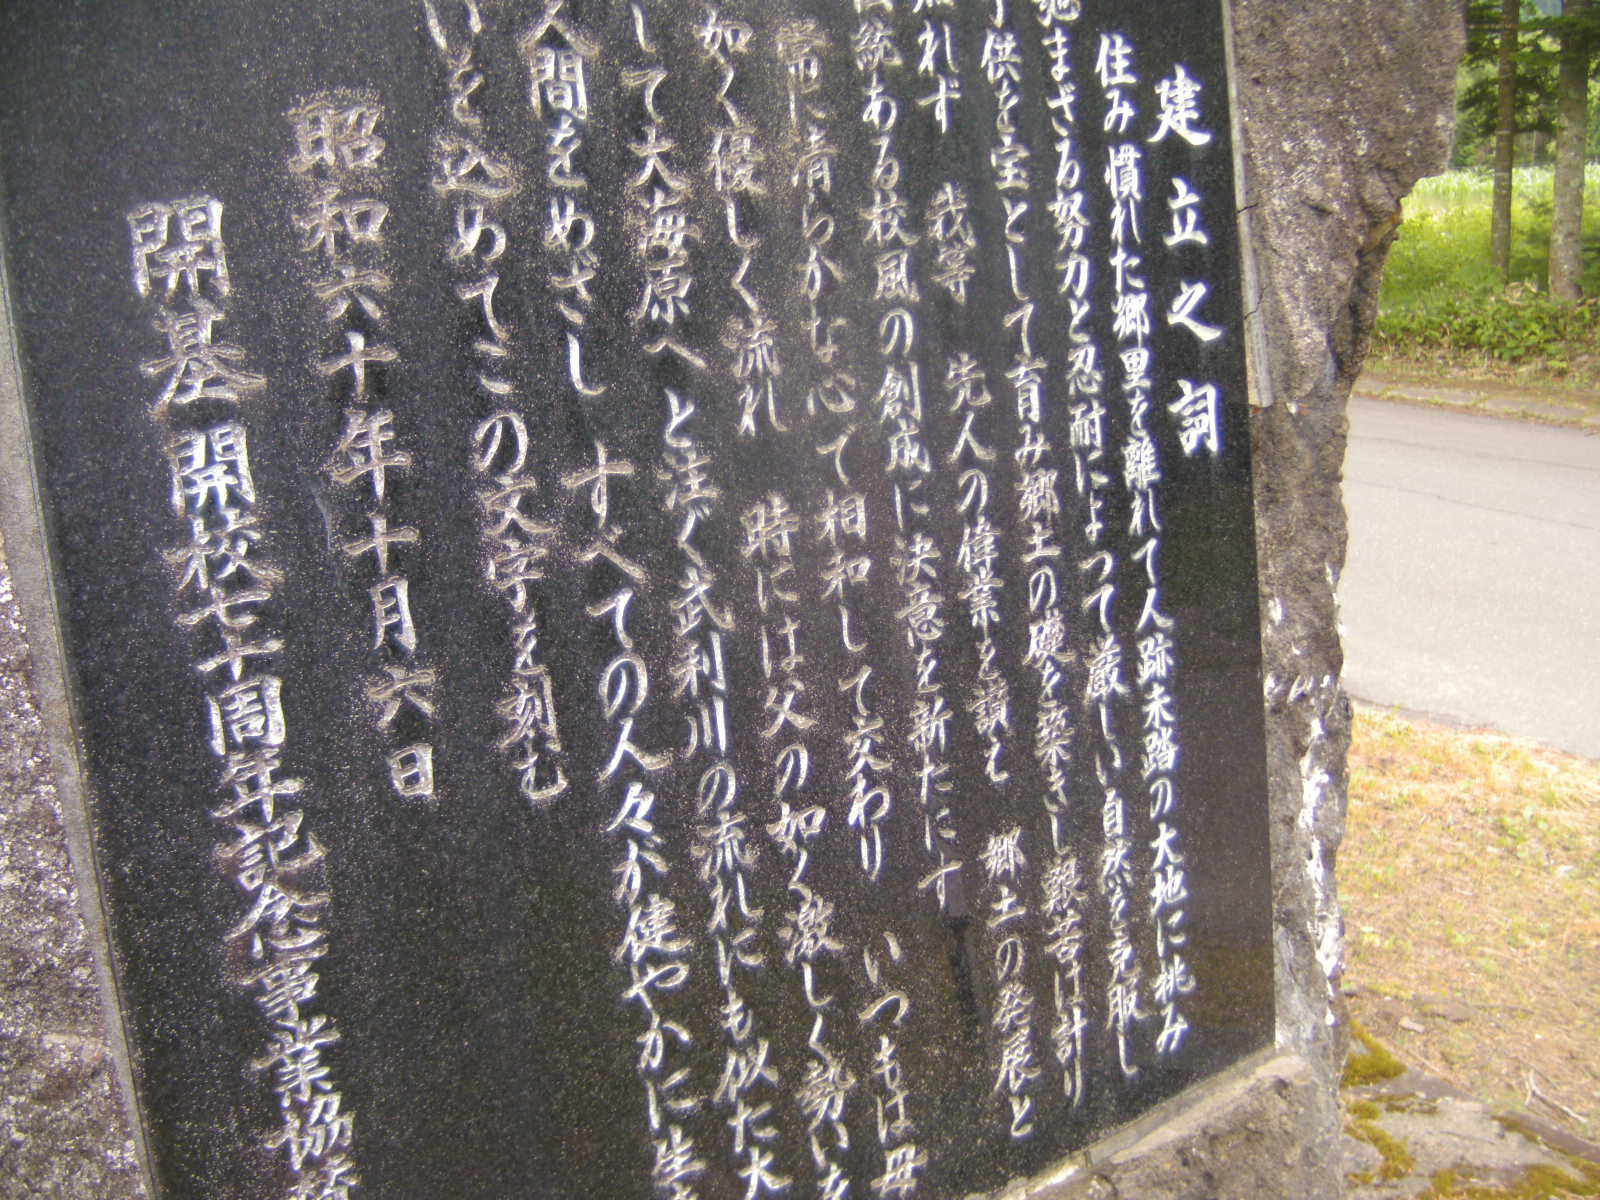 建立之詞
住み慣れた郷里を離れて人跡未踏の大地に挑み
まざる努力と忍耐によって厳しい自然を克服し
子供を宝として育み郷土の礎を築きし艱苦は計り
れず 我等 先人の偉業を讃え 郷土の発展と
伝統ある校風の創成に決意を新たにす
常に清らかな心で相和して交わり いつもは母
如く優しく流れ 時には父の如く激しく勢いを
して大海原へと注ぐ武利川の流れにも似た大
人間をめざし すべての人々が健やかに生き
いを込めてこの文字を刻む
昭和六十年十月六日
開基開校七十周年記念事業協賛